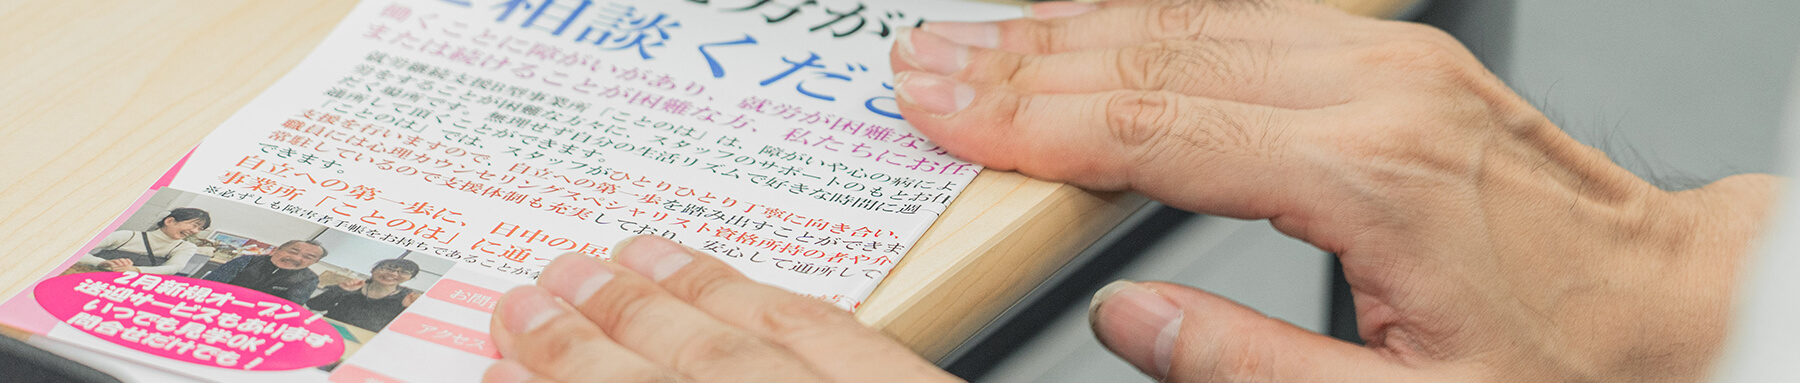 相談くださ
働くことに障がいがあり、就労が困難な方
または続けることが困難な方、私たちにお任
就労継続支援B型事業所「ことのは」は、障がいや心の病によ
労をすることが困難な方々に、スタッフのサポートのもとお仕
だく場所です。無理せず自分の生活リズムで好きな時間に週
通所して頂くことができます。
「ことのは」では、スタッフがひとりひとり丁寧に向き合い、
支援を行いますので、自立への第一歩を踏み出すことができま
職員には心理カウンセリングスペシャリスト資格所持の者や介
常駐しているので支援体制も充実しており、安心して通所して
できます。
自立への第一歩に、日中の居
事業所「ことのは」に通っ
※必ずしも障害者手帳をお持ちであることが
2月新規オープン!
送迎サービスもあります
いつでも見学OK!
問合せだけでも!
お問
アクセス